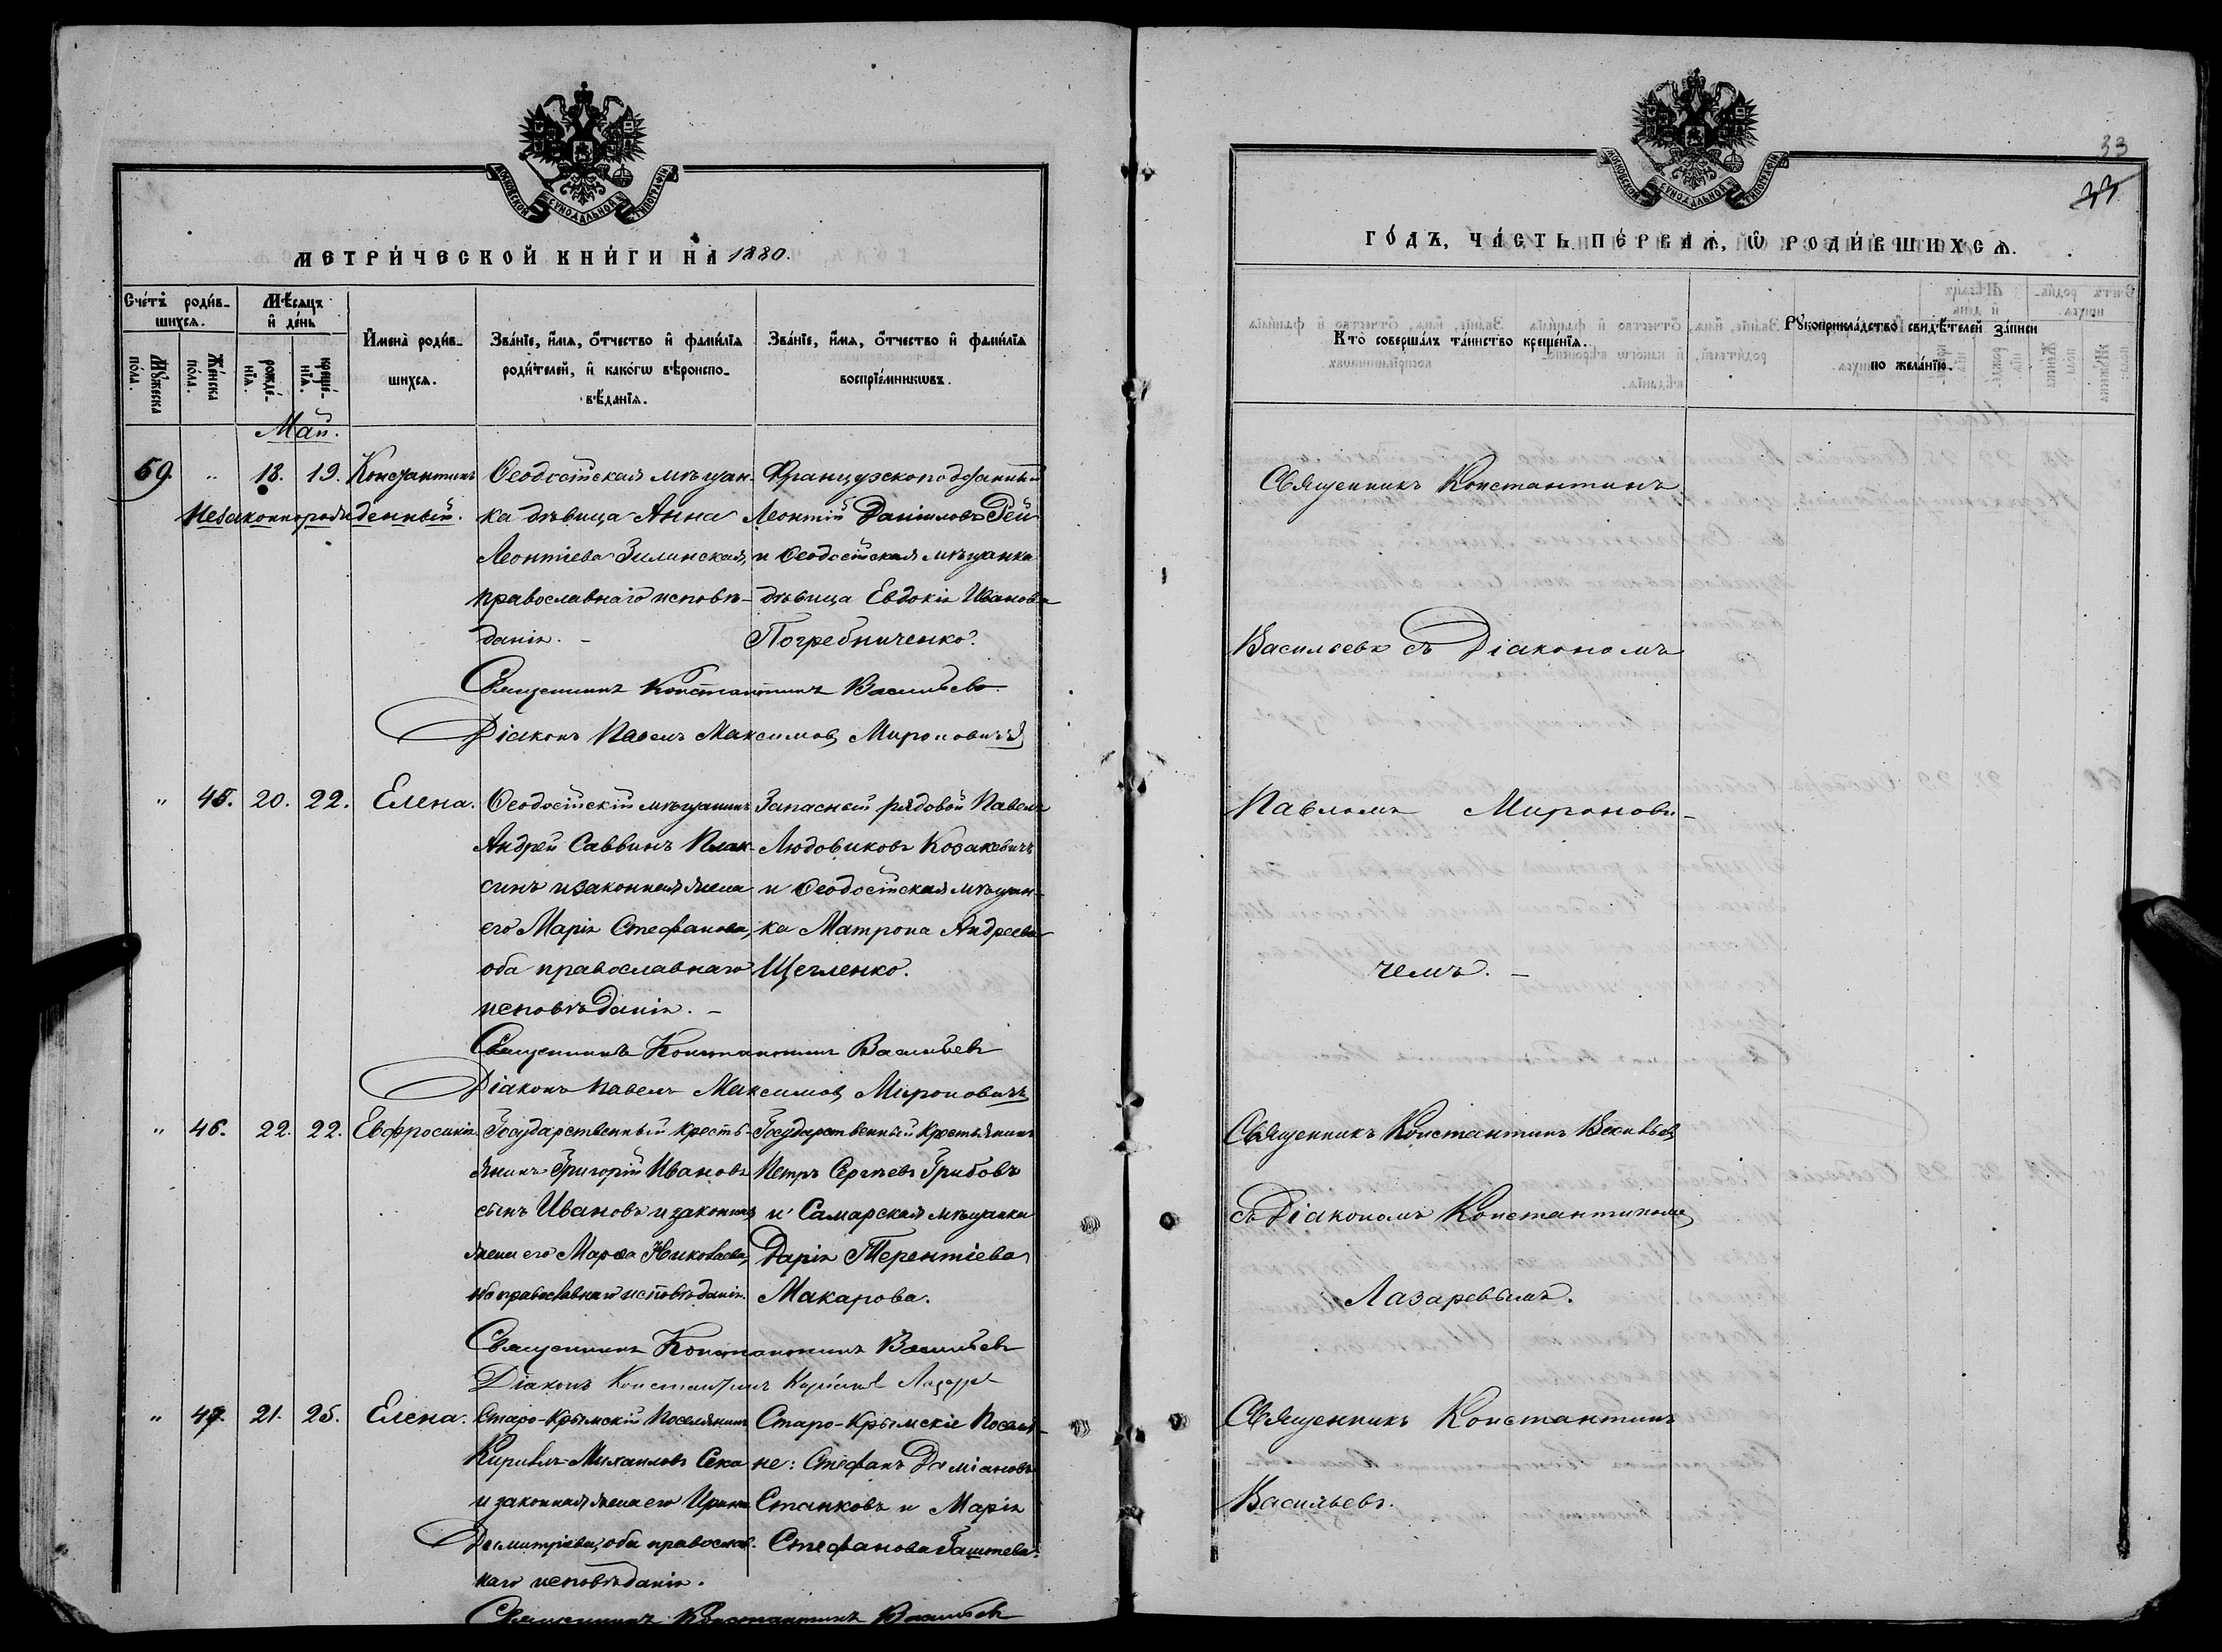 МОСКОВСКОЙ СѴНОДАЛЬНОЙ ТИПОГРАФІИ
МЕТРИ́ЧЕСКОЙ КНИ́ГИ НА 1880.
Сче́тъ роди́в-
шихсѧ.
Мѣ́сѧцъ
и҆ де́нь
Мꙋ́жеска
по́ла.
Же́нска
по́ла.
рожде́-
нїѧ.
креще́-
нїѧ.
И҆мена̀ роди́в-
шихсѧ.
Зва́нїе, и҆́мѧ, ѻ҆́тчество и҆ фами́лїѧ
роди́телей, и҆ како́гѡ вѣроиспо-
вѣ́данїѧ.
Зва́нїе, и҆́мѧ, ѻ҆́тчество и҆ фами́лїѧ
воспрїе́мникѡвъ.
Май.
59. " 18. 19. Константинъ
Незаконнорожденный.
Ѳеодосійская мѣщан-
ка дѣвица Анна
Леонтіева Зилинская,
православнаго исповѣ-
данія. –
Французскоподданный
Леонтій Даніиловъ Рей
и Ѳеодосійская мѣщанка
дѣвица Евдокія Иванова
Погребниченко.
Священникъ Константинъ Васильевъ
Діаконъ Павелъ Максимовъ Мироновичъ
" 45. 20. 22. Елена.
Ѳеодосійскій мѣщанинъ
Андрей Саввинъ Плак-
синъ и законная жена
его Марія Стефанова,
оба православнаго
исповѣданія. –
Запасный рядовой Павелъ
Людовиковъ Козакевичъ
и Ѳеодосійская мѣщан-
ка Матрона Андреева
Щегленко.
Священникъ Константинъ Васильевъ
Діаконъ Павелъ Максимовъ Мироновичъ
" 46. 22. 22. Евфросинія.
Государственный кресть-
янинъ Григорій Ивановъ
сынъ Ивановъ и законная
жена его Марѳа Николаева,
православнаго исповѣданія.
Государственный Крестьянинъ
Петръ Сергѣевъ Грибовъ
и Самарская мѣщанка
Дарія Терентіева
Макарова.
Священникъ Константинъ Васильевъ
Діаконъ Константинъ Лазаревъ
" 47. 21. 25. Елена.
Старо-Крымскій Поселянинъ
Кириллъ Михаиловъ Сека
и законная жена его Ирина
Димитріева, оба православ-
наго исповѣданія.
Старо-Крымскіе Поселя-
не: Стефанъ Даміановъ
Станковъ и Марія
Стефанова Гаштева.
Священникъ Константинъ Васильевъ
33
33
МОСКОВСКОЙ СѴНОДАЛЬНОЙ ТИПОГРАФІИ
ГО́ДЪ, ЧА́СТЬ ПЕ́РВАѦ, Ѡ҆ РОДИ́ВШИХСѦ.
Кто̀ соверша́лъ та́инство креще́нїѧ.
Рꙋкоприкла́дство свидѣ́телей за́писи
по жела́нїю.
Священникъ Константинъ
Васильевъ съ Діакономъ
Павломъ Миронови-
чемъ. –
Священникъ Константинъ Васильевъ
съ Діакономъ Константиномъ
Лазаревымъ.
Священникъ Константинъ
Васильевъ.